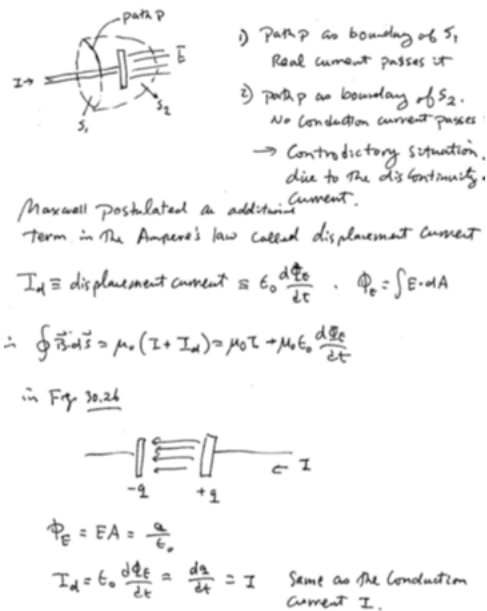 path P
I→
E
S₁
S₂
1) Path P as boundary of S₁
Real current passes it
2) path P as boundary of S₂.
No conduction current passes
→ Controdictory situation.
due to the discontinuity.
current.
Maxwell postulated an additional
term in the Ampere's law called displacement current
I_d ≡ displacement current ≡ ε₀ dΦ_E/dt . Φ_E = ∫E·dA
∴ ∮B⃗·ds⃗ = μ₀(I+I_d) = μ₀I + μ₀ε₀ dΦ_E/dt
in Fig. 30.26
← I
-q +q
Φ_E = EA = q/ε₀
I_d = ε₀ dΦ_E/dt = dq/dt = I Same as the Conduction
current I.